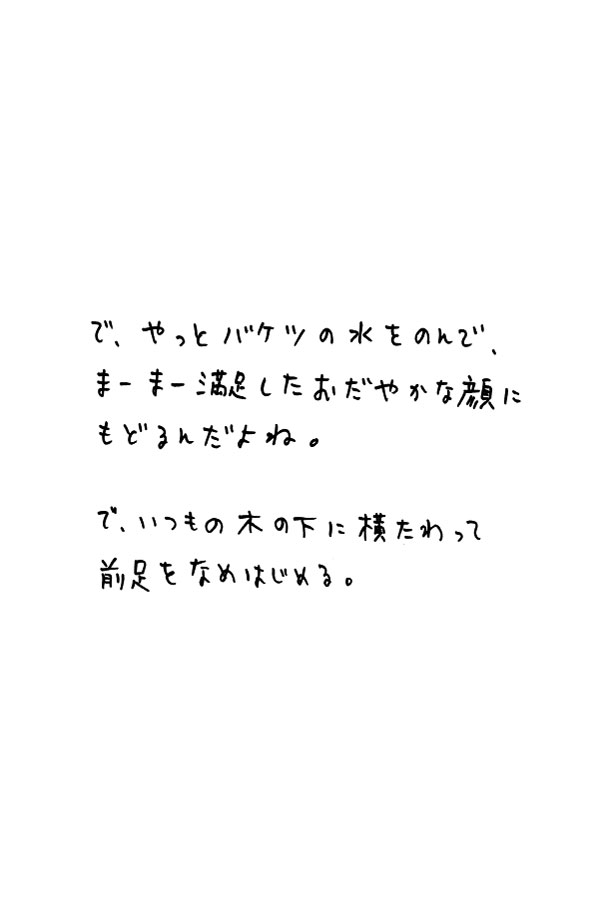 で、やっとバケツの水をのんで、
まーまー満足したおだやかな顔に
もどるんだよね。
で、いつもの木の下に横たわって
前足をなめはじめる。